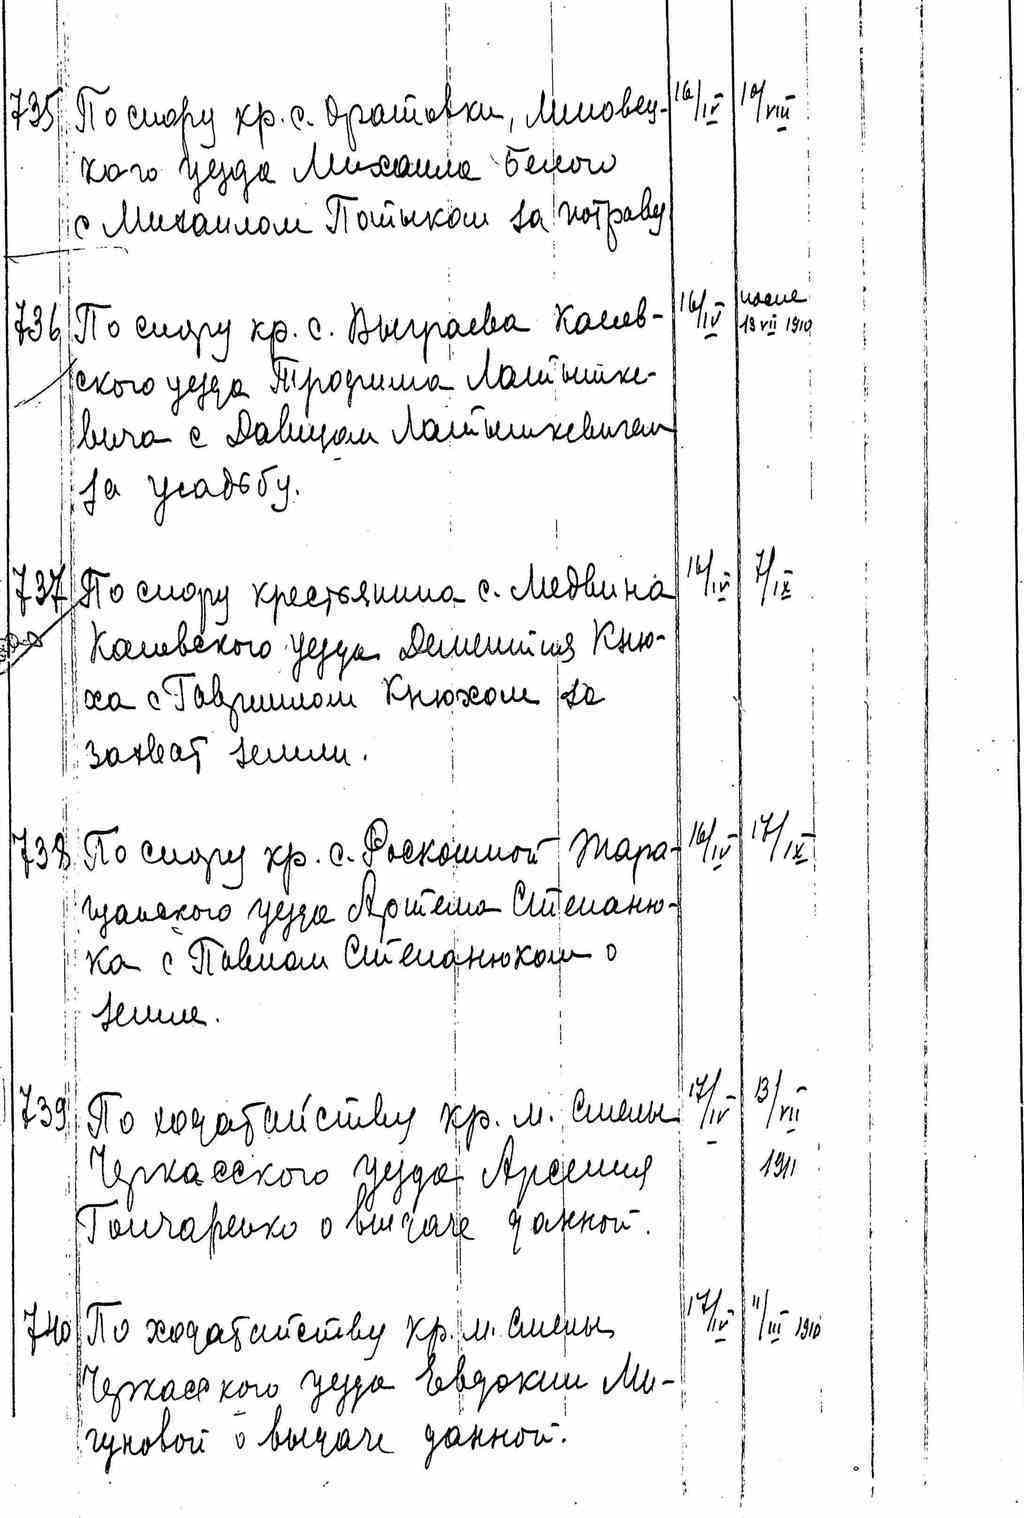 735 По спору кр. с. Оратовки, Липовец- 16/IV 10/VIII
кого уезда Михаила Белого
с Михаилом Потыком за потраву
736 По спору кр. с. Выграева Канев- 16/IV после
ского уезда Трофима Латышке- 19 VII 1910
вича с Давидом Латышкевичем
за усадьбу.
737 По спору крестьянина с. Медвина 16/IV 7/IX
Каневского уезда Дементия Кню-
ха с Гавриилом Кнюхом за
захват земли.
738 По спору кр. с. Роскошной Тара- 16/IV 17/IX
щанского уезда Артема Степаню-
ка с Павлом Степанюком о
земле.
739 По ходатайству кр. м. Смелы 17/IV 13/VII
Черкасского уезда Арсения 1911
Гончаренко о выдаче данной.
740 По ходатайству кр. м. Смелы 17/IV 11/III 1910
Черкасского уезда Евдокии Ми-
гуновой о выдаче данной.